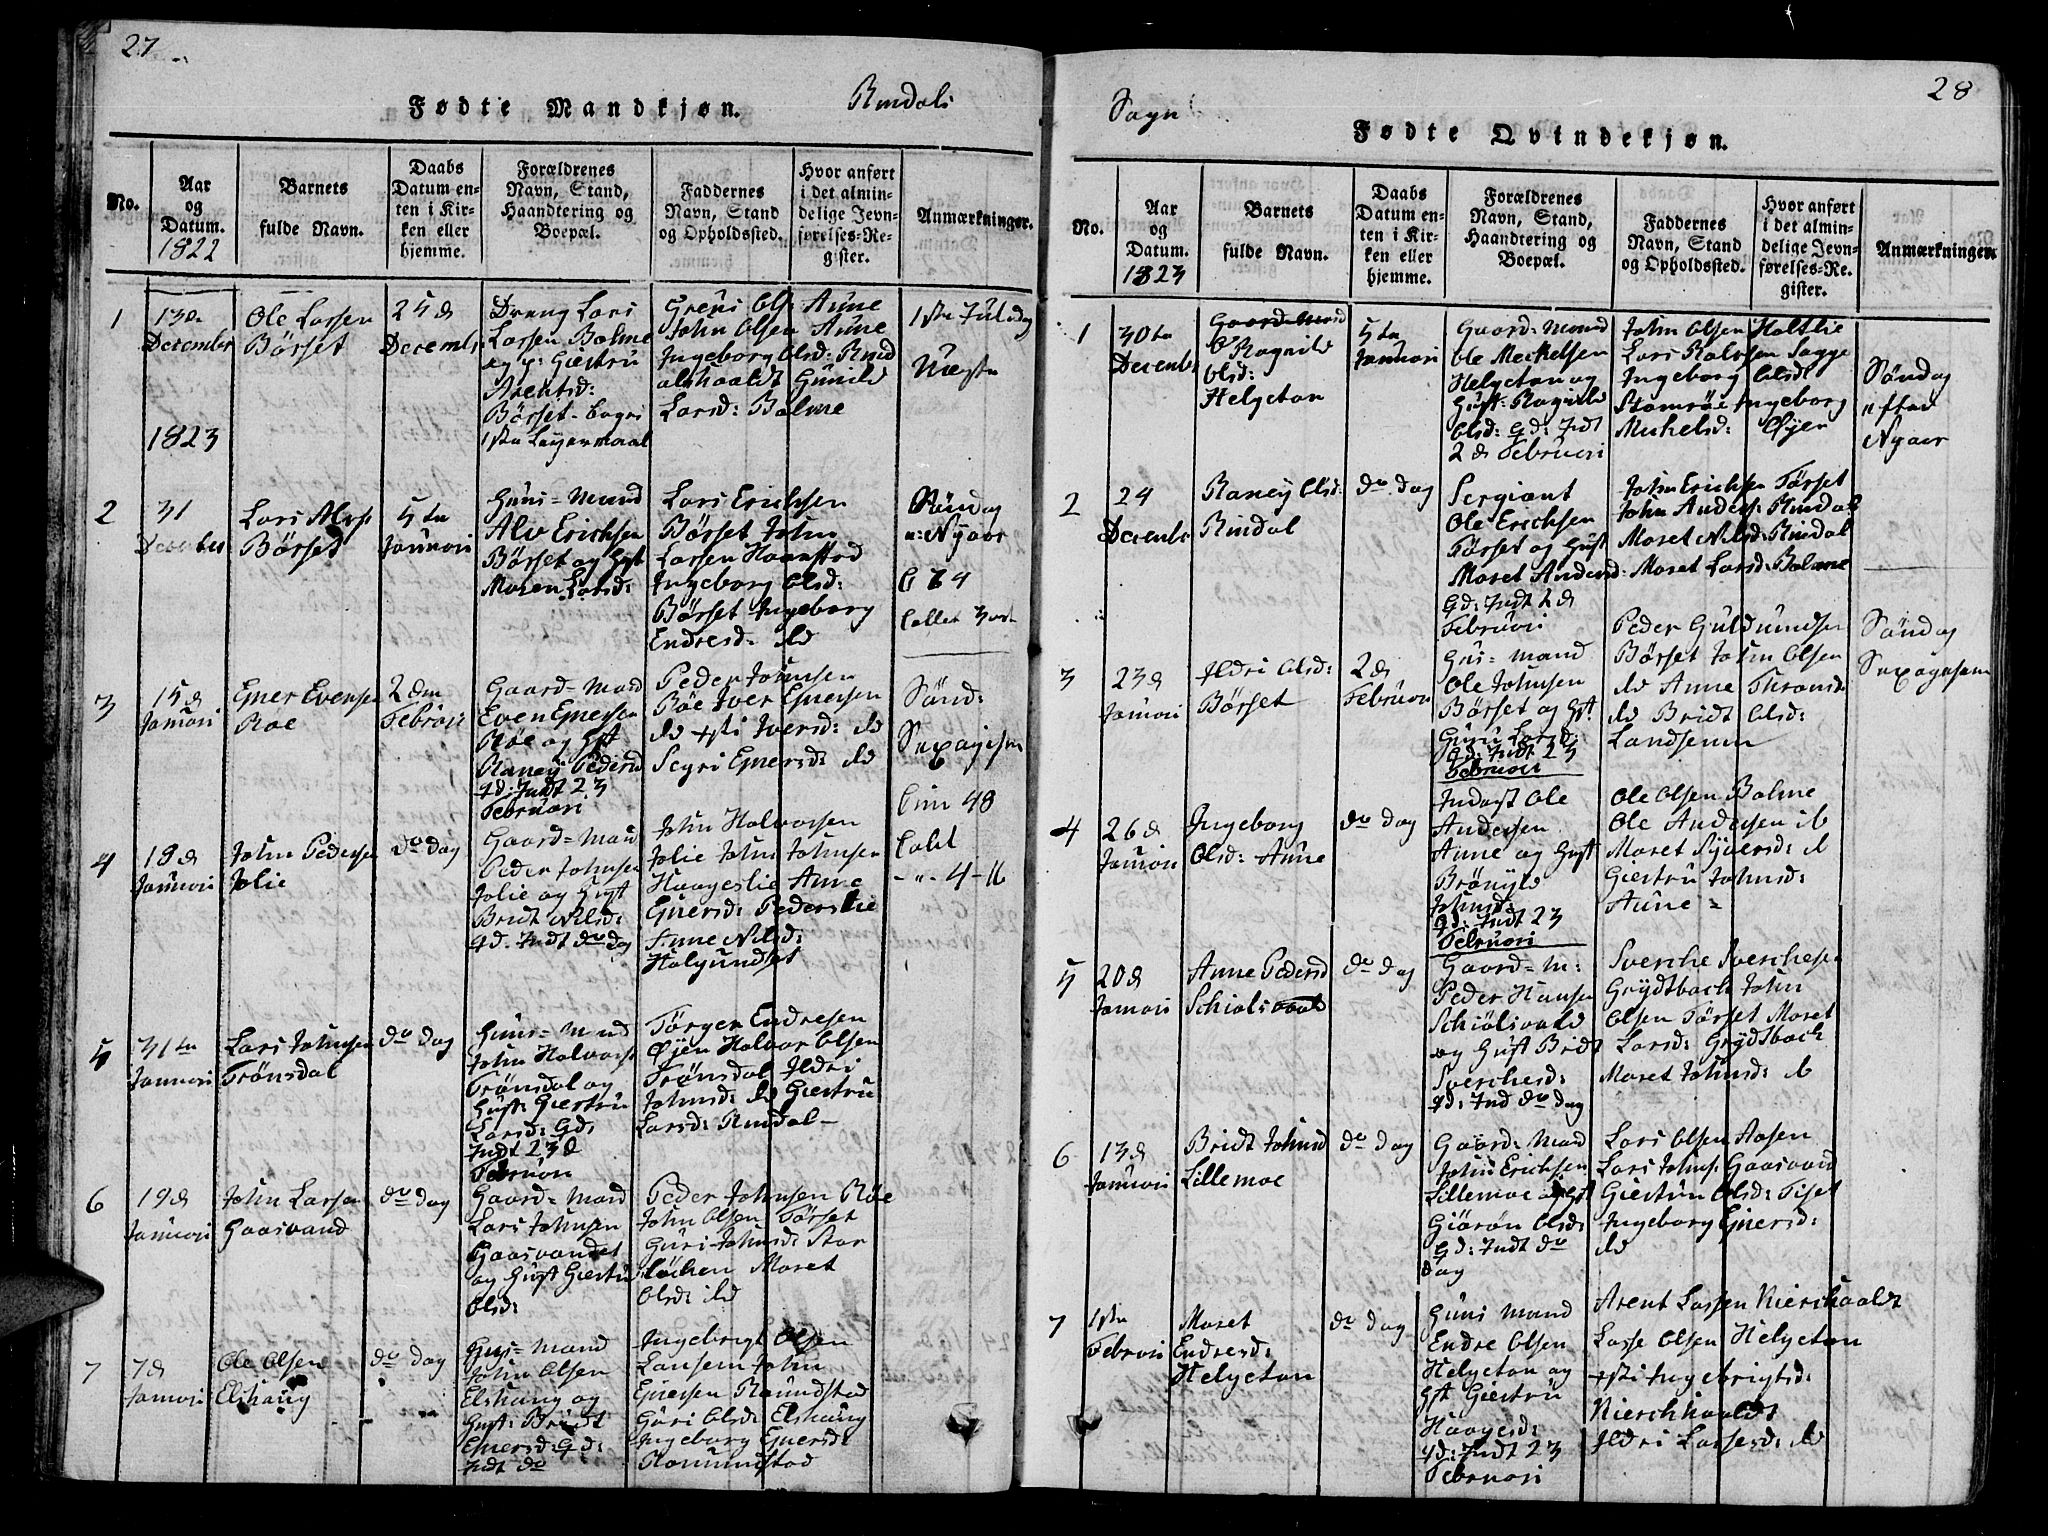 27
Fødte Mandkjøn.
Rindals
No.
Aar
og
Datum.
1822
Barnets
fulde Navn.
Daabs
Datum en-
ten i Kir-
ken eller
hjemme.
Forældrenes
Navn, Stand,
Haandtering og
Boepæl.
Faddernes
Navn, Stand
og Opholdssted.
Hvor anført
i det almin-
delige Jevn-
førelses-Re-
gister.
Anmærkninger.
1
13de
December
Ole Larsen
Børset
25 d
December
Dreng Lars
Larsen Bolme
og p: Giertru
Arentsd:
Børset
1ste Leyermaal
John Olsen Aune
Ingeborg Olsd: Rind
alshaaldt Gunild
Larsd: Bolme
1ste Juledag
1823
2
31
December
Lars Alvs:
Børset
5te
Januari
Huus=Mand
Alv Erichsen
Børset og Hst
Maren Larsd:
Lars Erichsen
Børset John
Larsen Haanstad
Ingeborg Olsd:
Børset Ingeborg
Endresd: ib
Søndag
e: Nyaar
3
15 d
Januari
Ener Evensen
Røe
2den
Februari
Gaard=Mand
Even Enersen
Røe og Hst
Raney Pedersd
gd: Indt 23
Februari
Peder Johnsen
Røe Iver Enersen
ib Iversd: ib
Segri Enersd: ib
Sønd:
Sexagesim
4
19 d
Januari
John Pedersen
Jolie
do dag
Gaard=Mand
Peder Johnsen
Jolie og Hust
Bridt Nilsd:
gd. Indt do dag
John Halvorsen
Jolie John Johnsen
Haageslie Anne
Enersd: Pederslie
Anne Nilsd:
Holgundset
5
31te
Januari
Lars Johnsen
Trønsdal
do dag
Huus=Mand
John Halvors
Trønsdal og
Hust: Giertru
Larsd: Gd:
Indt 23 d
Februari
Tørger Endresen
Øyen Halvor Olsen
Trønsdal Ildri
Johnsd: ib Giertru
Larsd: Rindal
6
19 d
Januari
John Larsen
Gaasvand
do dag
Gaard=Mand
Lars Johnsen
Gaasvandet
og Hust Giertru
Olsd:
Peder Johnsen Røe
John Olsen Tørset
Guri Johnsd: Stor
løchen Maret
Olsd: ib
7
7 d
Januari
Ole Olsen
Elshaug
do dag
Hus=Mand
John Olsen
Elshaug og
Hust: Bridt
Enersd: Gd:
Indt do
Ingebrigt Olsen
Lansem John
Enersen Romundstad
Guri Olsd: Elshaug
Ingeborg Enersd:
Romundstad
Sogn
28
Fødte Qvindekjøn.
No.
Aar
og
Datum.
1823
Barnets
fulde Navn.
Daabs
Datum en-
ten i Kir-
ken eller
hjemme.
Forældrenes
Navn, Stand,
Haandtering og
Boepæl.
Faddernes
Navn, Stand
og Opholdssted.
Hvor anført
i det almin-
delige Jevn-
førelses-Re-
gister.
Anmærkningen
1
30te
December
Ragnild
Olsd:
Helgeton
5te
Januari
Gaard=Mand
Ole Meckelsen
Helgeton og
Hust: Ragnild
Olsd: Gd: Indt
2 d Februari
John Olsen Holtlie
Ingeborg Olsd:
Stomrøe Ingeborg
Michelsd: Øyen
Søndag
efter
Nyaar
2
24
December
Raney Olsd:
Rindal
do dag
Sergiant
Ole Erichsen
Tørset og Hust
Maret Andersd:
Gd: Indt 2 d
Februari
John Erichsen Tørset
John Anders: Rindal
Maret Nilsd: Rindal
Maret Larsd: Bolme
3
23 d
Januari
Ildri Olsd:
Børset
2 d
Februari
Hus=Mand
Ole Johnsen
Børset og Hst
Guru Larsd:
gd: Indt 23
Februari
Peder Guldumdsen
Børset John Olsen
ib Anne Thronsd
ib Bridt Olsd:
Landsemm
Søndag
Sexagesim
4
26 d
Januari
Ingeborg
Olsd: Aune
do dag
Inderst Ole
Andersen
Aune og Hust
Brønyld
Johnsd:
gd: Indt 23
Februari
Ole Olsen Bolme
Ole Andersen ib
Maret Siversd: ib
Giertru Johnsd:
Aune
5
20 d
Januari
Anne Pedersd
do dag
Gaard=M:
Peder Hansen
Schiølsvold
og Hust Bridt
Sverchesd:
gd: Ind do dag
Sverche Sverchesen
Grydtbach John
Olsen Tørset Maret
Larsd: Grydtbach
Maret Johnsd: ib
6
13 d
Januari
Bridt Johnsd
Lillemoe
do dag
Gaard: Mand
John Erichsen
Lillemoe og Hst
Giørøn Olsd:
Gd: Indt do
dag
Lars Olsen Aasen
Lars Johns: Gaasvand
Giertru Olsd: Tiset
Ingeborg Enersd:
ib
7
1ste
Februari
Maret
Endresd:
Helgeton
do dag
Huus Mand
Endre Olsen
Helgeton og
Hst Giertru
Haagesd:
gd: Indt 23
Februari
Arent Larsen Nierschaaldt
Lasse Olsen Helgeton
Ingebrigtsd:
Nierschhaaldt
Ildri Larsesd: ib